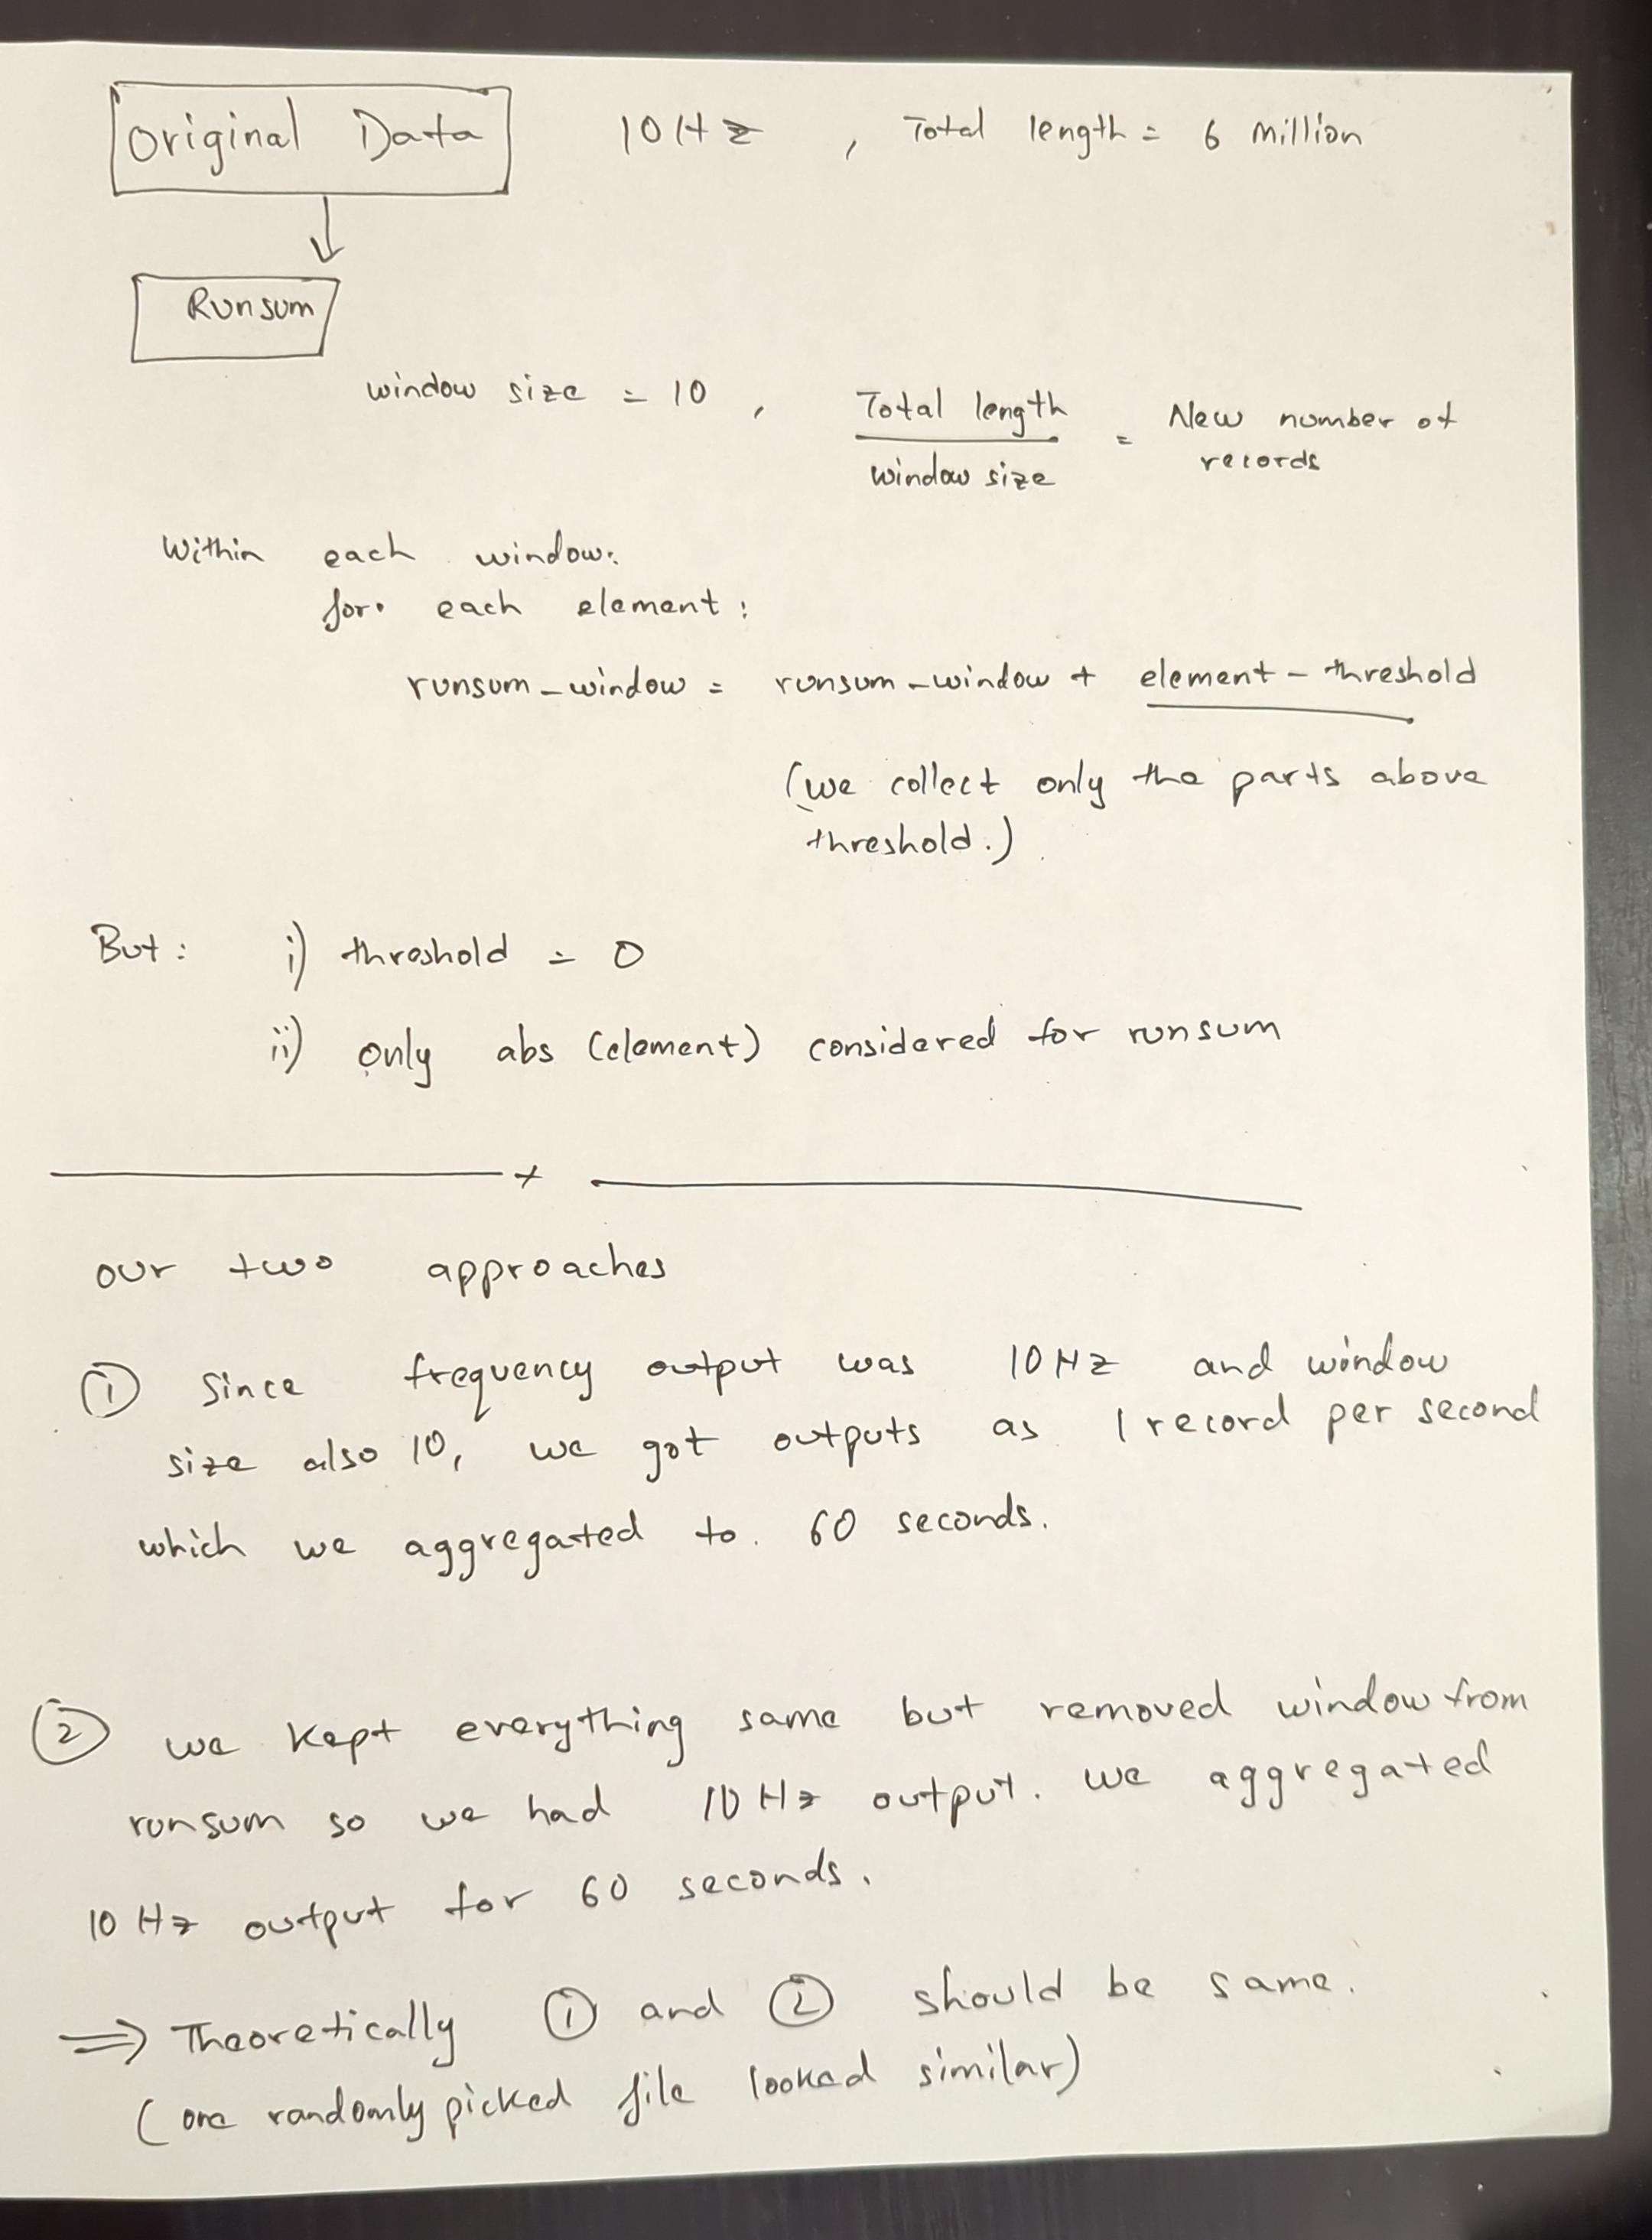 Original Data 10Hz , Total length = 6 million
Runsum
window size = 10 , Total length / window size = New number of records
Within each window:
for each element:
runsum_window = runsum_window + element - threshold
(we collect only the parts above
threshold.)
But: i) threshold = 0
ii) only abs (element) considered for runsum
our two approaches
① Since frequency output was 10Hz and window
size also 10, we got outputs as 1 record per second
which we aggregated to 60 seconds.
② we kept everything same but removed window from
runsum so we had 10Hz output. we aggregated
10Hz output for 60 seconds.
⇒ Theoretically ① and ② should be same.
(one randomly picked file looked similar)